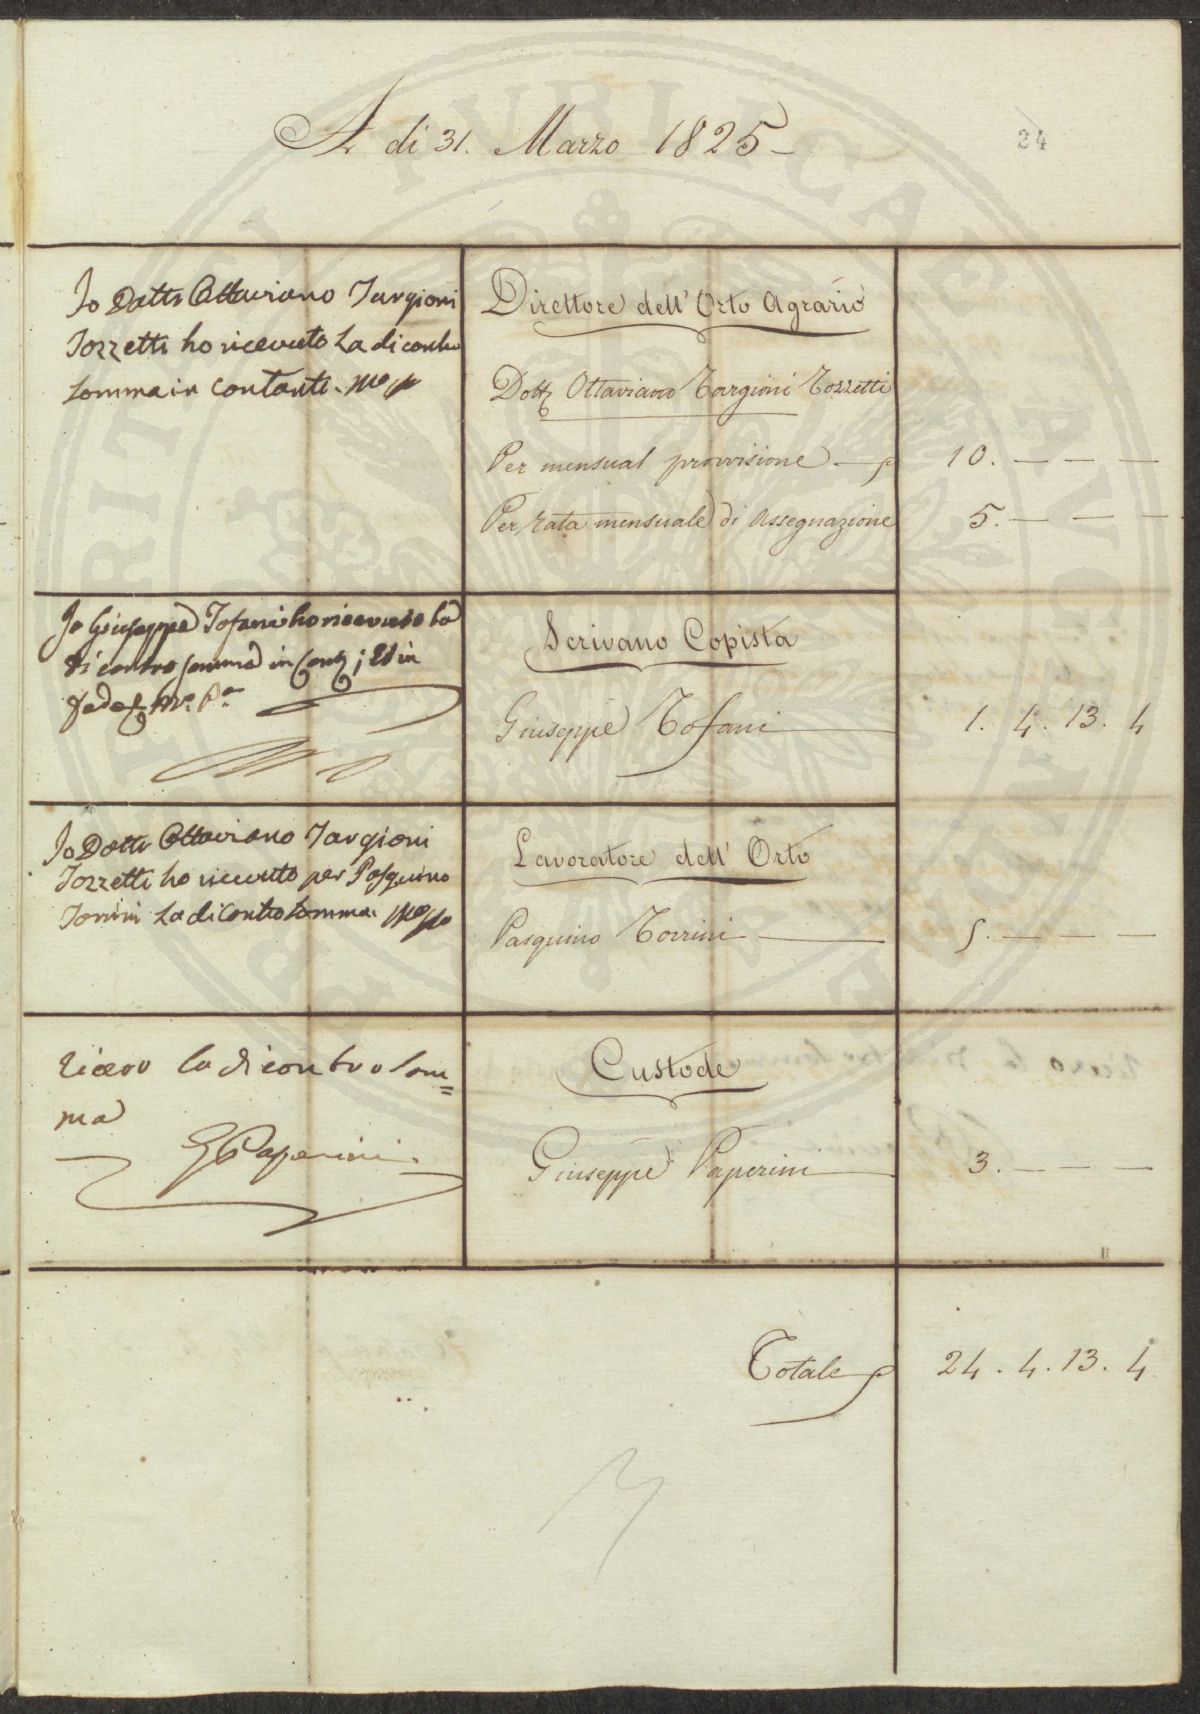 A di 31. Marzo 1825
24
Io Dottr Ottaviano Targioni
Tozzetti ho ricevuto La di contro
Somma in Contanti. Mo pp
Direttore dell' Orto Agrario
Dottr Ottaviano Targioni Tozzetti
Per mensual provvisione 10. — — —
Per rata mensuale di Assegnazione 5. — — —
Io Giuseppe Tofani ho ricevuto la
di contro somma in Contti; Ed in
fede Mo. Pa
Scrivano Copista
Giuseppe Tofani 1. 4. 13. 4
Io Dottr Ottaviano Targioni
Tozzetti ho ricevuto per Pasquino
Torrini La di Contro Somma.
Lavoratore dell' Orto
Pasquino Torrini 5. — — —
Ricevo la di contro Som=
ma
G Paperini
Custode
Giuseppe Paperini 3. — — —
Totale 24. 4. 13. 4